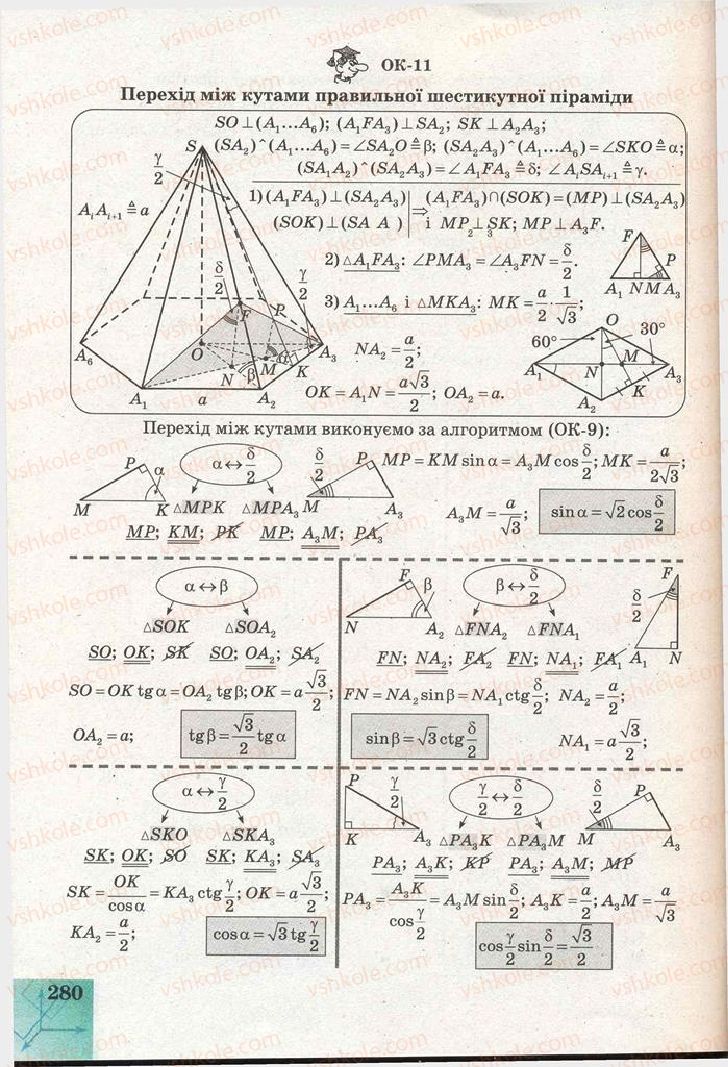 ОК-11
Перехід між кутами правильної шестикутної піраміди
SO⊥(A₁...A₆); (A₁FA₃)⊥SA₂; SK⊥A₂A₃;
(SA₂)^(A₁...A₆)=∠SA₂O≜β; (SA₂A₃)^(A₁...A₆)=∠SKO≜α;
(SA₁A₂)^(SA₂A₃)=∠A₁FA₃≜δ; ∠AᵢSAᵢ₊₁≜γ.
S
γ/2
AᵢAᵢ₊₁≜a
1)(A₁FA₃)⊥(SA₂A₃)| (A₁FA₃)∩(SOK)=(MP)⊥(SA₂A₃)
(SOK)⊥(SA A )|⇒ і MP⊥SK; MP⊥A₃F.
2 3
2)△A₁FA₃: ∠PMA₃=∠A₃FN=δ/2.
F P
A₁ N M A₃
δ/2 γ/2
3) A₁...A₆ і △MKA₃: MK=a/2·1/√3;
F P
O A₃ A₆ M α K N β
A₁ a A₂
NA₂=a/2;
OK=A₁N=a√3/2; OA₂=a.
O
60° 30°
A₁ N M A₃
K
A₂
Перехід між кутами виконуємо за алгоритмом (ОК-9):
P α
M K
α↔δ/2
△MPK △MPA₃
MP; KM; PK MP; A₃M; PA₃
δ/2 P
M A₃
MP=KM sinα=A₃M cos δ/2; MK=a/2√3;
A₃M=a/√3; sinα=√2cos δ/2
α↔β
△SOK △SOA₂
SO; OK; SK SO; OA₂; SA₂
SO=OK tgα=OA₂ tgβ; OK=a √3/2;
OA₂=a; tgβ=√3/2 tgα
F β
N A₂
β↔δ/2
△FNA₂ △FNA₁
F
δ/2
A₁ N
FN; NA₂; FA₂ FN; NA₁; FA₁
FN=NA₂sinβ=NA₁ctg δ/2; NA₂=a/2;
sinβ=√3 ctg δ/2 NA₁=a √3/2;
α↔γ/2
△SKO △SKA₃
SK; OK; SO SK; KA₃; SA₃
SK=OK/cosα=KA₃ctg γ/2; OK=a √3/2;
KA₂=a/2; cosα=√3 tg γ/2
P γ/2
K A₃
γ/2↔δ/2
△PA₃K △PA₃M
δ/2 P
M A₃
PA₃; A₃K; KP PA₃; A₃M; MP
PA₃=A₃K/cos γ/2=A₃M sin δ/2; A₃K=a/2; A₃M=a/√3
cos γ/2 sin δ/2=√3/2
280
vshkole.com